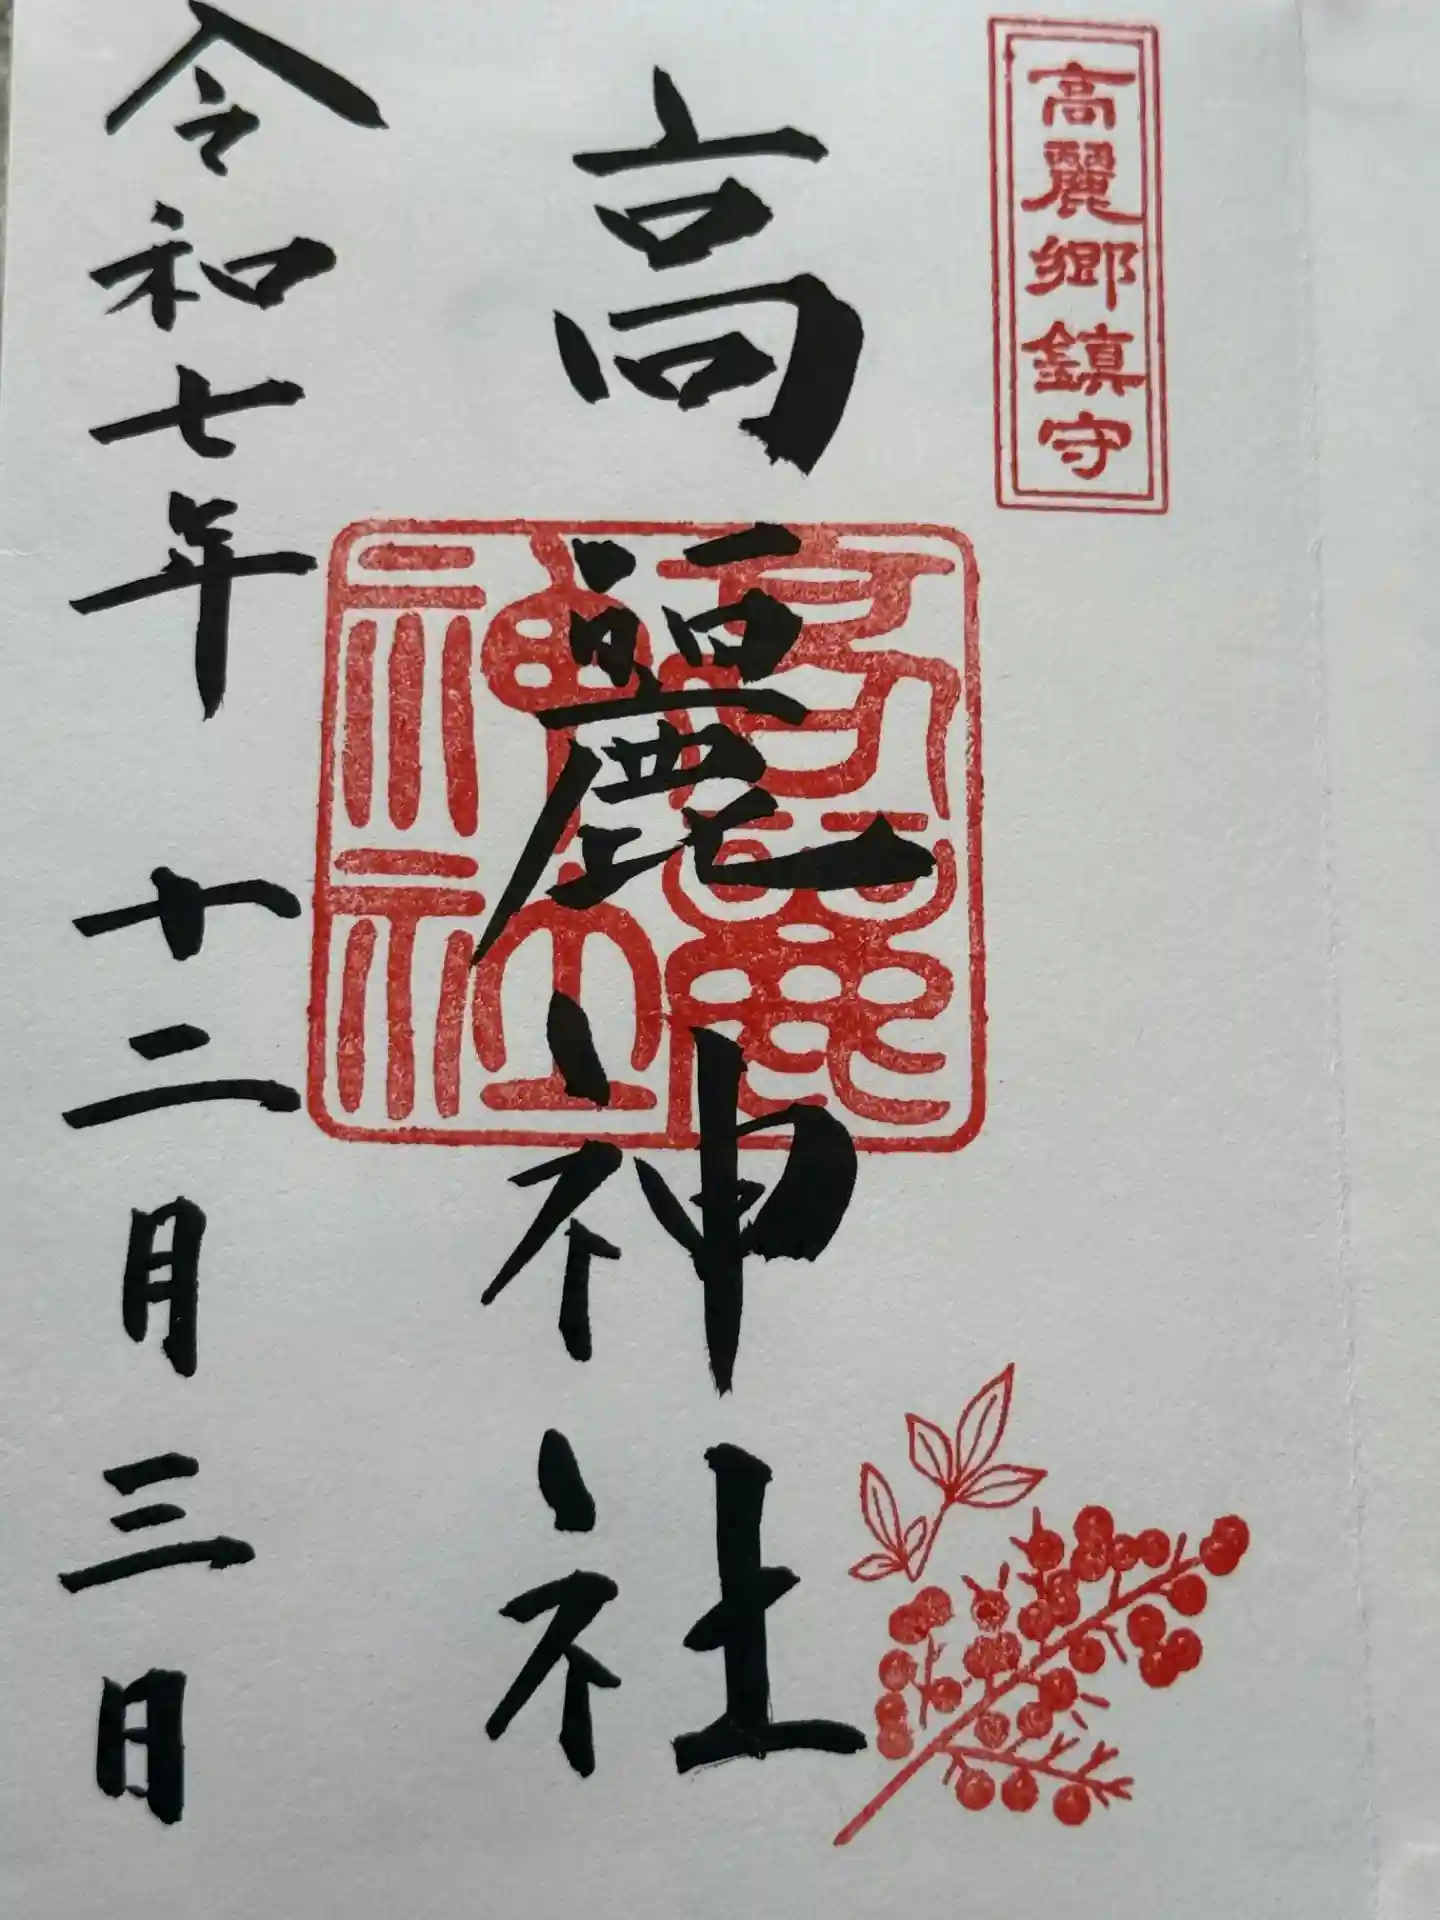 高麗郷鎮守
高麗神社
高麗神社
令和七年 十二月三日